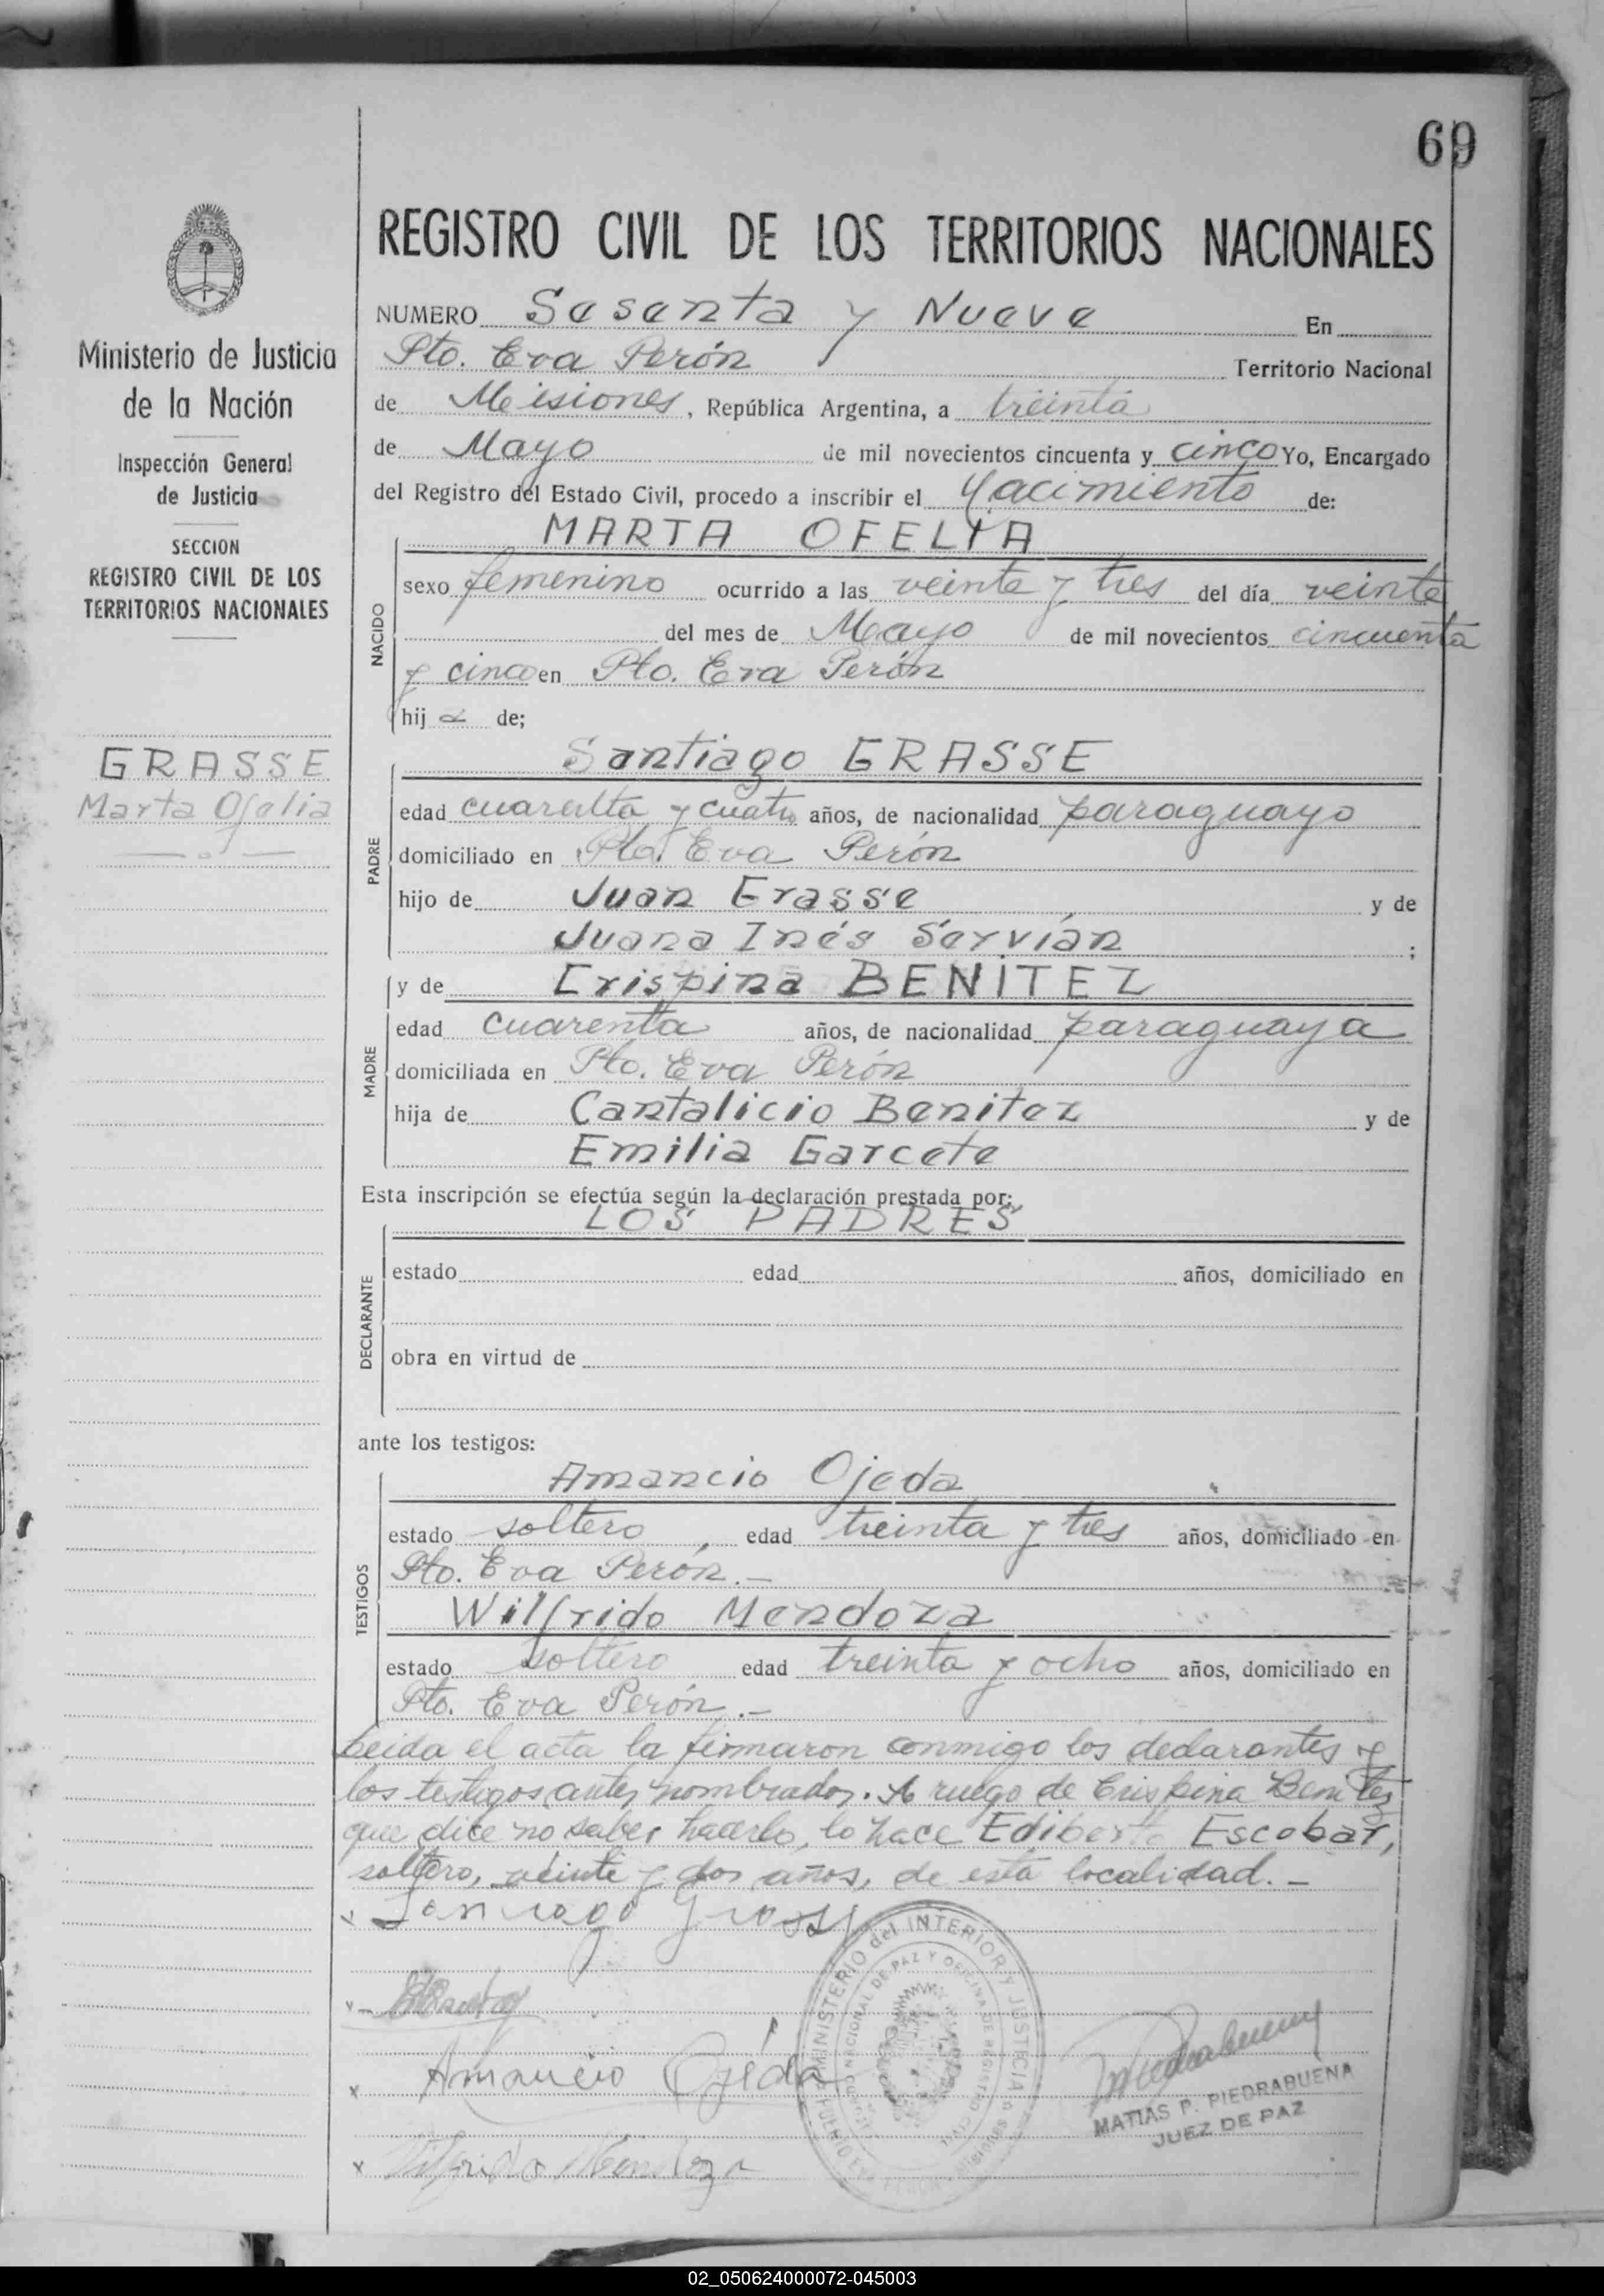 69
REGISTRO CIVIL DE LOS TERRITORIOS NACIONALES
Ministerio de Justicia
de la Nación
Inspección General
de Justicia
SECCION
REGISTRO CIVIL DE LOS
TERRITORIOS NACIONALES
GRASSE
Marta Ofelia
NUMERO Sesenta y Nueve En
Pto. Eva Perón Territorio Nacional
de Misiones, República Argentina, a treinta
de Mayo de mil novecientos cincuenta y cinco Yo, Encargado
del Registro del Estado Civil, procedo a inscribir el Nacimiento de:
MARTA OFELIA
NACIDO
sexo femenino ocurrido a las veinte y tres del día veinte
del mes de Mayo de mil novecientos cincuenta
y cinco en Pto. Eva Perón
hij a de;
Santiago GRASSE
PADRE
edad cuarenta y cuatro años, de nacionalidad paraguayo
domiciliado en Pto. Eva Perón
hijo de Juan Grasse y de
Juana Inés Servían ;
y de Crispina BENÍTEZ
MADRE
edad cuarenta años, de nacionalidad paraguaya
domiciliada en Pto. Eva Perón
hija de Cantalicio Benitez y de
Emilia Garcete
Esta inscripción se efectúa según la declaración prestada por:
LOS PADRES
DECLARANTE
estado edad años, domiciliado en
obra en virtud de
ante los testigos:
Amancio Ojeda
TESTIGOS
estado soltero, edad treinta y tres años, domiciliado en
Pto. Eva Perón.-
Wilfrido Mendoza
estado soltero edad treinta y ocho años, domiciliado en
Pto. Eva Perón.-
Leida el acta la firmaron conmigo los declarantes y
los testigos antes nombrados. A ruego de Crispina Benitez
que dice no saber hacerlo, lo hace Ediberto Escobar,
soltero, veinte y dos años, de esta localidad.-
x Santiago Grasse
x
x Amancio Ojeda
x Wilfrido Mendoza
MINISTERIO del INTERIOR y JUSTICIA
NACIONAL DE PAZ Y OFICINA DE REGISTRO CIVIL
MATIAS P. PIEDRABUENA
JUEZ DE PAZ
02_050624000072-045003